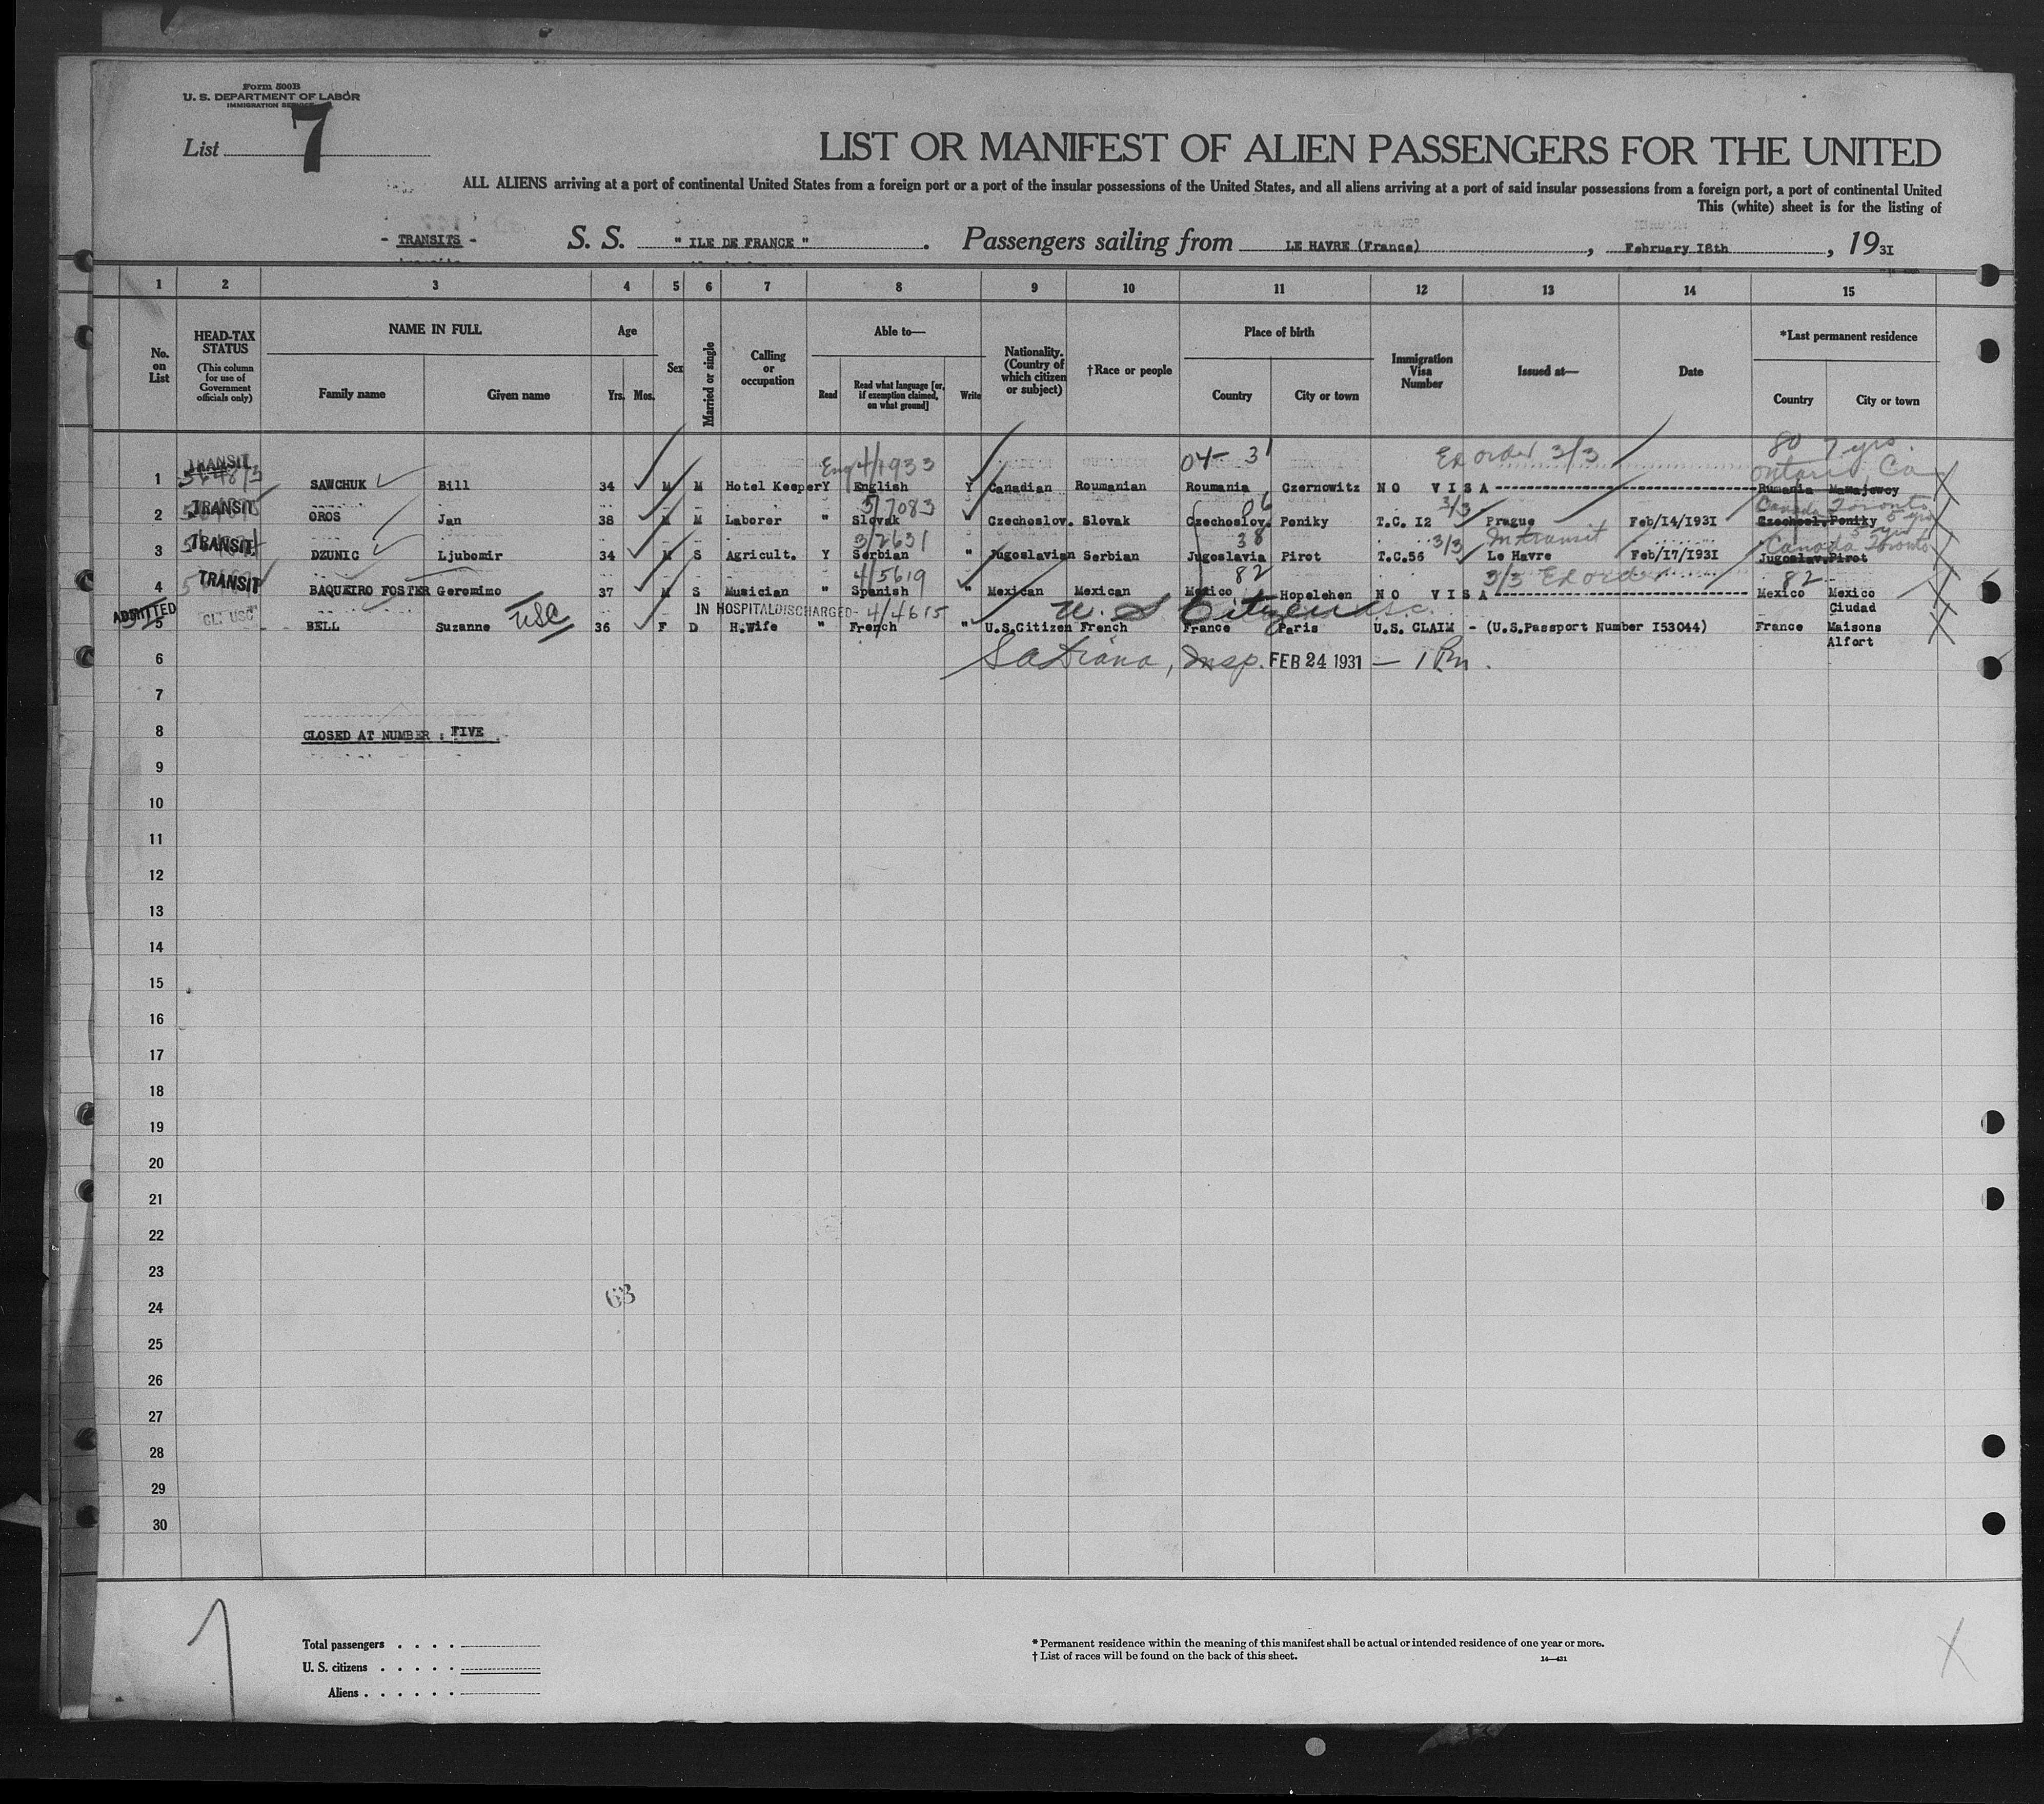 Form 500B
U. S. DEPARTMENT OF LABOR
IMMIGRATION SERVICE
List 7
LIST OR MANIFEST OF ALIEN PASSENGERS FOR THE UNITED
ALL ALIENS arriving at a port of continental United States from a foreign port or a port of the insular possessions of the United States, and all aliens arriving at a port of said insular possessions from a foreign port, a port of continental United
This (white) sheet is for the listing of
- TRANSITS - S. S. " ILE DE FRANCE " . Passengers sailing from LE HAVRE (France) , February 18th , 19 31
1 2 3 4 5 6 7 8 9 10 11 12 13 14 15
No. on List HEAD-TAX STATUS (This column for use of Government officials only) NAME IN FULL Family name Given name Age Yrs. Mos. Sex Married or single Calling or occupation Able to— Read Read what language [or, if exemption claimed, on what ground] Write Nationality. (Country of which citizen or subject) †Race or people Place of birth Country City or town Immigration Visa Number Issued at— Date *Last permanent residence Country City or town
Eng 4/1933 04- 31 Ex order 3/3 80 7 yrs
TRANSIT Ontario Ca
1 SAWCHUK Bill 34 M M Hotel Keeper Y English Y Canadian Roumanian Roumania Czernowitz NO VISA Rumania Mamajewcy
TRANSIT 5/7083 06 3/3 Canada Toronto
2 OROS Jan 38 M M Laborer " Slovak " Czechoslov. Slovak Czechoslov. Poniky T.C. I2 Prague Feb/I4/I931 Czechosl. Poniky 5 yrs
TRANSIT 3/2631 38 3/3 In transit Canada Toronto 5 yrs
3 DZUNIC Ljubomir 34 M S Agricult. Y Serbian " Jugoslavian Serbian Jugoslavia Pirot T.C.56 Le Havre Feb/I7/I931 Jugoslav. Pirot
TRANSIT 4/5619 82 3/3 Ex order 82
4 BAQUEIRO FOSTER Geromimo 37 M S Musician " Spanish " Mexican Mexican Mexico Hopelehen NO VISA Mexico Mexico
ADMITTED CL. USC IN HOSPITAL DISCHARGED- 4/4615 U. S. Citizen U.S.C. Ciudad
5 BELL Suzanne USC 36 F D H.Wife " French " U.S.Citizen French France Paris U.S. CLAIM - (U.S.Passport Number I53044) France Maisons
Alfort
6 Insp. FEB 24 1931 — 1 Pm.
7
8 CLOSED AT NUMBER : FIVE .
9
10
11
12
13
14
15
16
17
18
19
20
21
22
23
24 63
25
26
27
28
29
30
Total passengers . . . .
U. S. citizens . . . . .
Aliens . . . . . .
* Permanent residence within the meaning of this manifest shall be actual or intended residence of one year or more.
† List of races will be found on the back of this sheet. 14—431